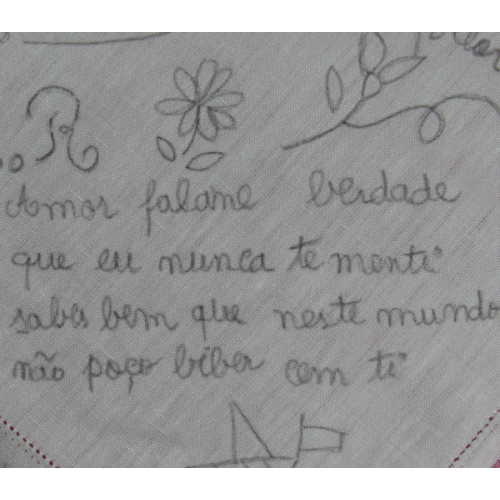 R
Amor falame berdade
que eu nunca te menti
sabes bem que neste mundo
não poço biber com ti